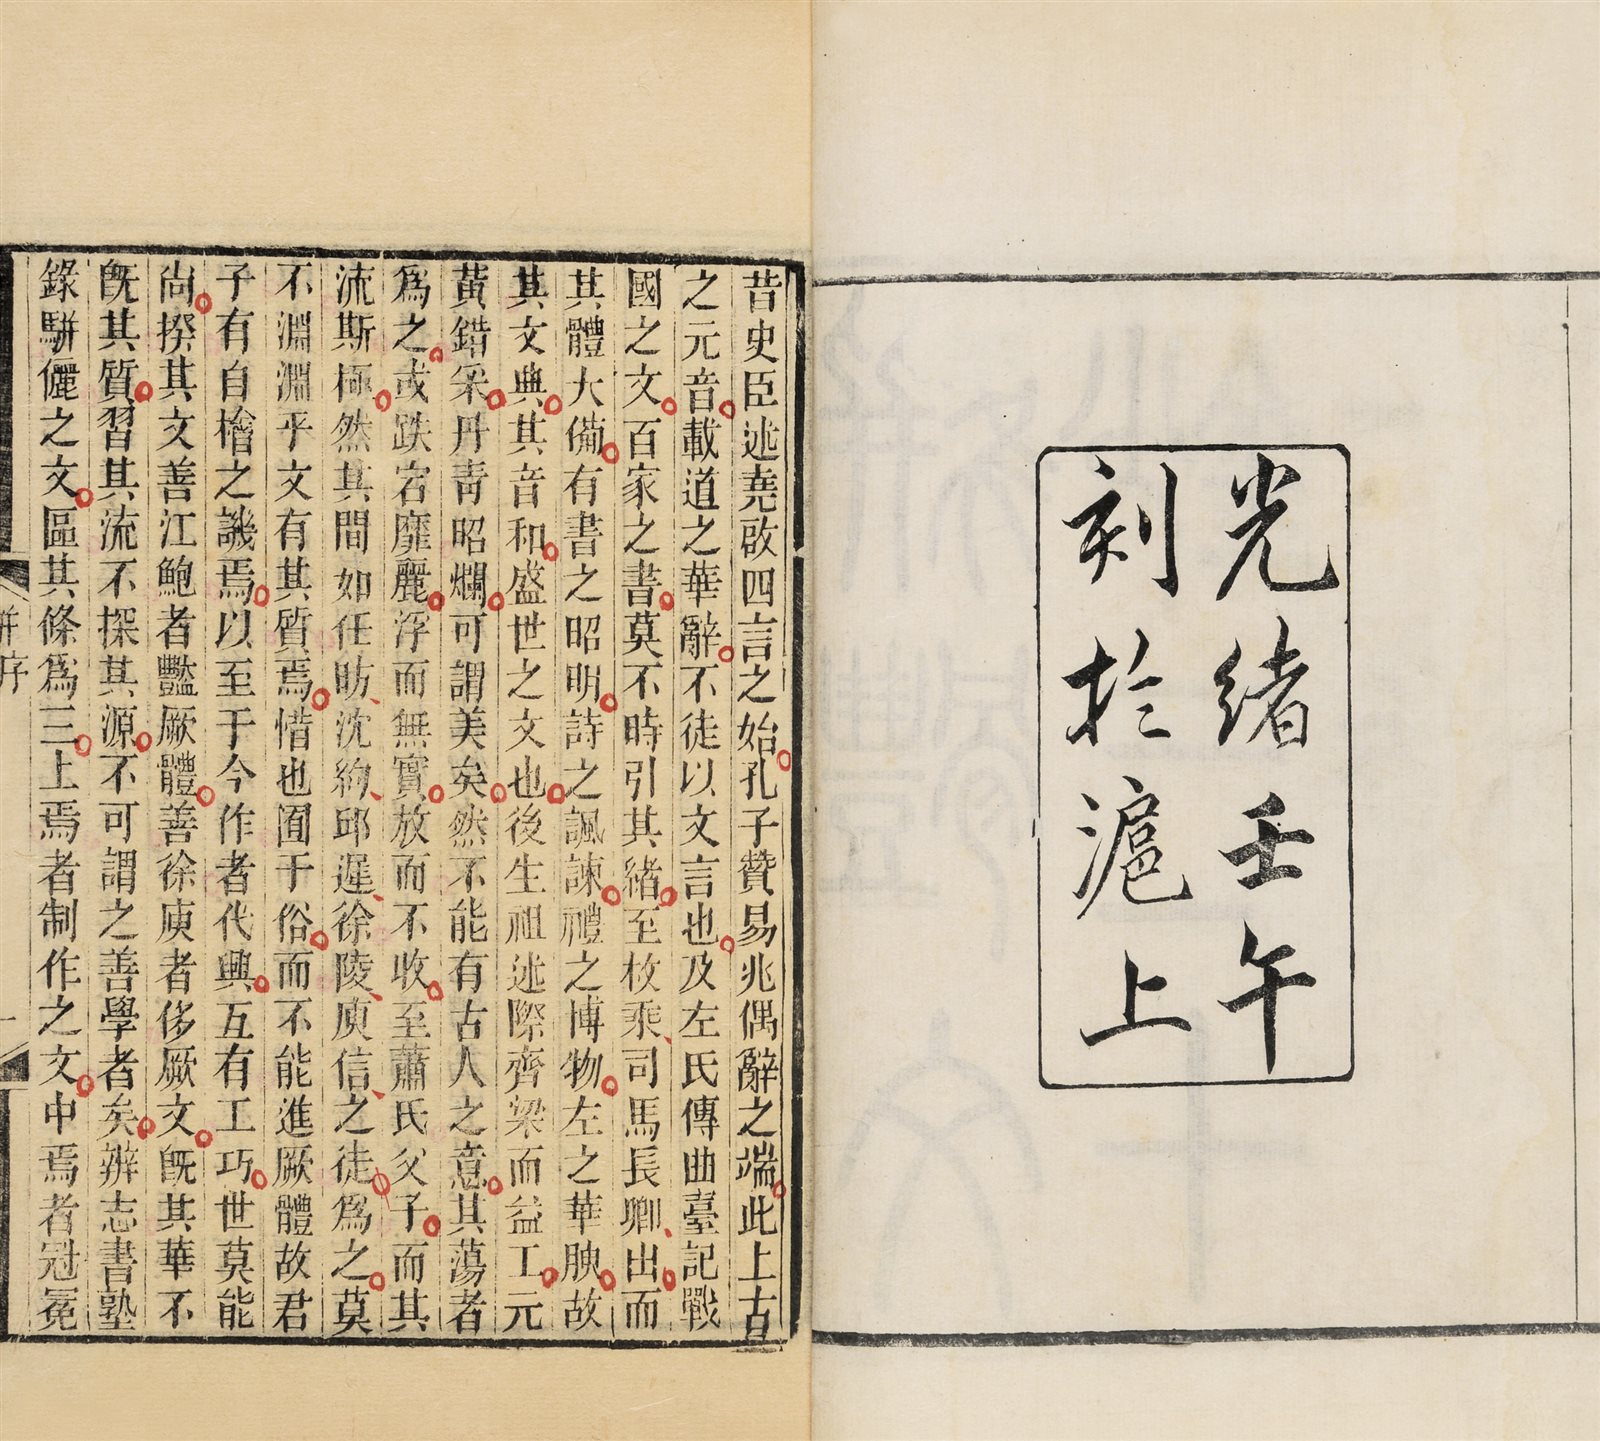 光緒壬午
刻於滬上
昔史臣述堯啟四言之始孔子贊易兆偶辭之端此上古
之元音載道之華辭不徒以文言也及左氏傳曲臺記戰
國之文百家之書莫不時引其緒至枚乘司馬長卿出而
其體大僃有書之昭明詩之諷諫禮之博物左之華腴故
其文典其音和盛世之文也後生祖述際齊梁而益工元
黃錯采丹青昭爛可謂美矣然不能有古人之意其蕩者
爲之或跌宕靡麗浮而無實放而不收至蕭氏父子而其
流斯極然其間如任昉沈約邱遲徐陵庾信之徒爲之莫
不淵淵乎文有其質焉惜也囿于俗而不能進厥體故君
子有自檜之譏焉以至于今作者代興互有工巧世莫能
尚揆其文善江鮑者豔厥體善徐庾者侈厥文旣其華不
旣其質習其流不探其源不可謂之善學者矣辨志書塾
錄駢儷之文區其條爲三上焉者制作之文中焉者冠冕
序